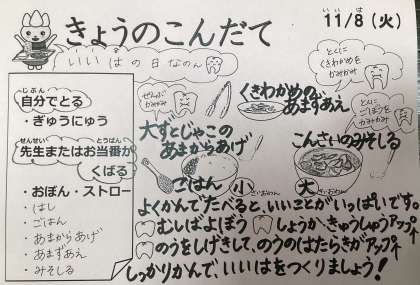 きょうのこんだて
11/8(火)
いい
は
いいはの日なのん
とくに
くきわかめを
かみかみ
ぜんぶ
かみかみ
くきわかめの
あまずあえ
とくに
ごぼうを
かみかみ
じぶん
自分でとる
・ぎゅうにゅう
せんせい とうばん
先生またはお当番が
くばる
・おぼん・ストロー
・はし
・ごはん
・あまからあげ
・あまずあえ
・みそしる
大ずとじゃこの
あまからあげ
こんさいのみそしる
ごはん 小 大
よくかんでたべると、いいことがいっぱいです。
むしばよぼう
しょうか、きゅうしゅうアップ
のうをしげきして、のうのはたらきがアップ
しっかりかんで、いいはをつくりましょう!